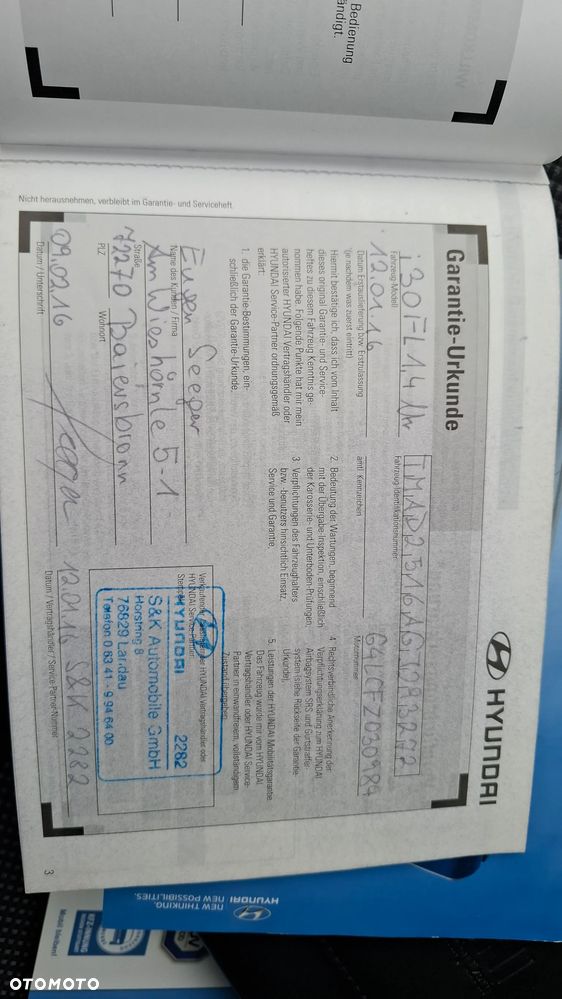 Bedienung
ändigt.
Nicht herausnehmen, verbleibt im Garantie- und Serviceheft.
HYUNDAI
Garantie-Urkunde
i30 FL 1.4 Uni
Fahrzeug-Modell
Fahrzeug-Identifikationsnummer
12.01.16
G4LCFZ030984
Datum Erstauslieferung bzw. Erstzulassung
(je nachdem was zuerst eintritt)
amtl. Kennzeichen
Motornummer
Hiermit bestätige ich, dass ich vom Inhalt
dieses original Garantie- und Service-
heftes zu diesem Fahrzeug Kenntnis ge-
nommen habe. Folgende Punkte hat mir mein
autorisierter HYUNDAI Vertragshändler oder
HYUNDAI Service-Partner ordnungsgemäß
erklärt:
1. die Garantie-Bestimmungen, ein-
schließlich der Garantie-Urkunde.
2. Bedeutung der Wartungen, beginnend
mit der Übergabe-Inspektion, einschließlich
der Karosserie- und Unterboden-Prüfungen.
3. Verpflichtungen des Fahrzeughalters
bzw. -benutzers hinsichtlich Einsatz,
Service und Garantie.
4. Rechtsverbindliche Anerkennung der
Verpflichtungserklärung zum HYUNDAI
Airbagsystem SRS und Gurtstraffer-
system (siehe Rückseite der Garantie-
Urkunde).
5. Leistungen der HYUNDAI Mobilitätsgarantie.
Das Fahrzeug wurde mir vom HYUNDAI
Vertragshändler oder HYUNDAI Service-
Partner in einwandfreiem, vollständigem
Zustand übergeben.
Eugen Seeger
Name des Kunden / Firma
Am Wieshörnle 5-1
Straße
72270 Baiersbronn
PLZ Wohnort
09.02.16
Datum / Unterschrift
HYUNDAI 2282
S&K Automobile GmbH
Horstring 8
76829 Landau
Telefon 0 63 41 - 9 94 64 00
12.01.16 S&K 2282
Datum / Vertragshändler / Service-Partner-Nummer
3
NEW THINKING.
NEW POSSIBILITIES.
HYUNDAI
Mobil bleiben!
OTOMOTO